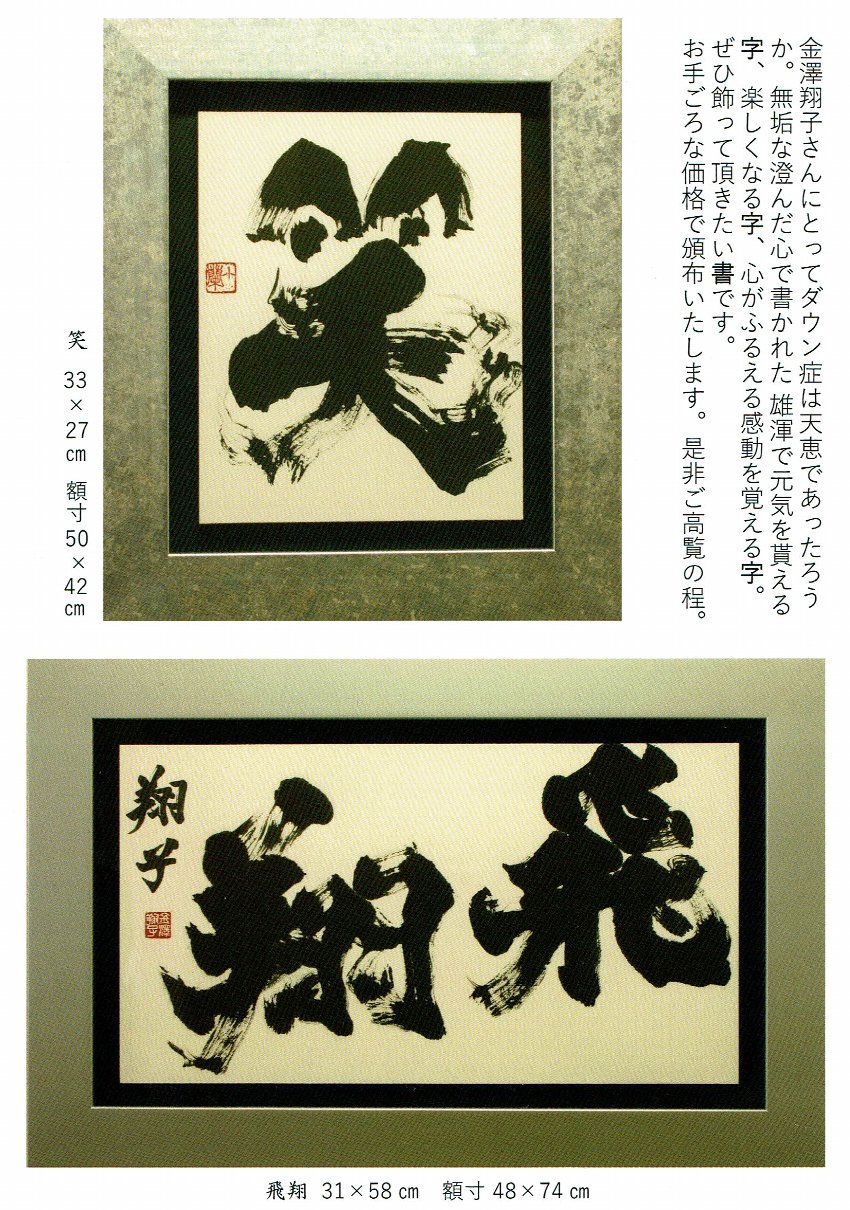 金澤翔子さんにとってダウン症は天恵であったろう
か。無垢な澄んだ心で書かれた 雄渾で元気を貰える
字、楽しくなる字、心がふるえる感動を覚える字。
ぜひ飾って頂きたい書です。
お手ごろな価格で頒布いたします。是非ご高覧の程。
笑
笑 33×27㎝ 額寸50×42㎝
飛翔
翔子
金澤翔子
飛翔 31×58㎝ 額寸48×74㎝